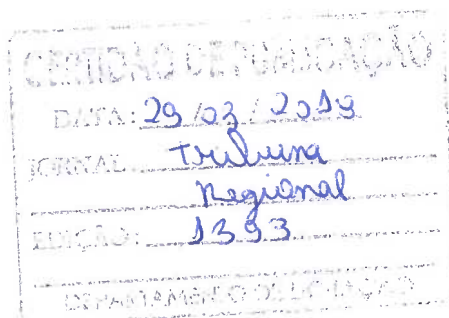 CERTIDÃO DE PUBLICAÇÃO
DATA: 29 / 03 / 2019
JORNAL Tribuna
Regional
EDIÇÃO: 1393
DEPARTAMENTO DE LICITAÇÃO